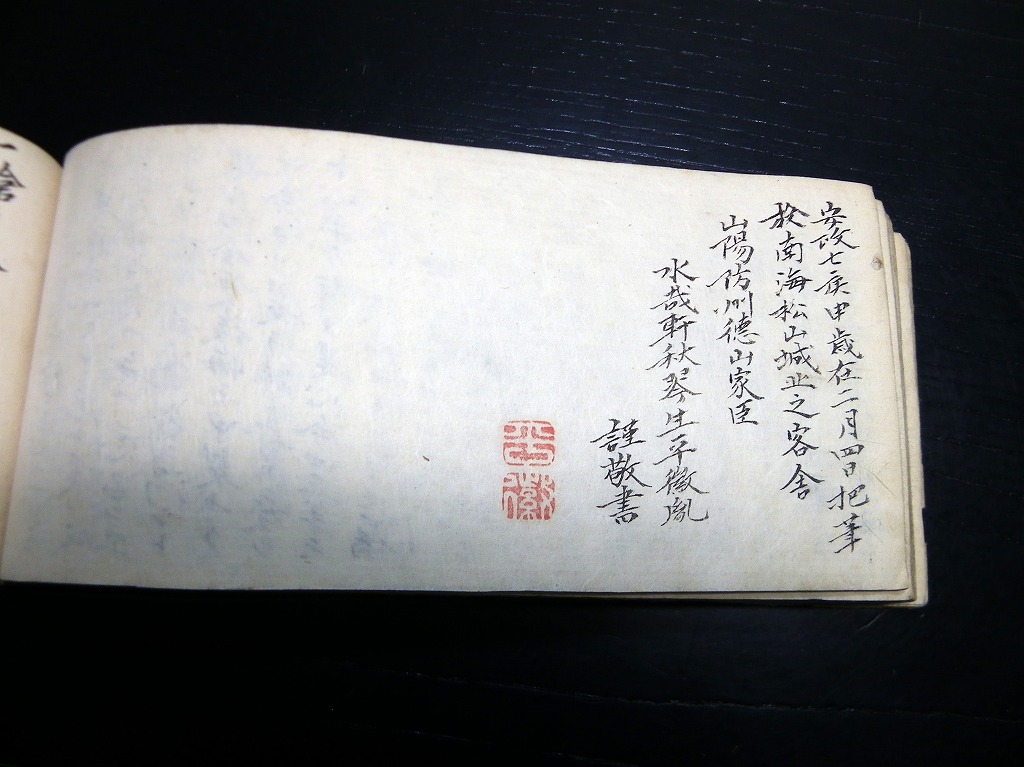 安政七庚申歳在二月四日把筆
於南海松山城北之客舎
山陽防州德山家臣
水哉軒秋琴生平徴胤
謹敬書
平徴